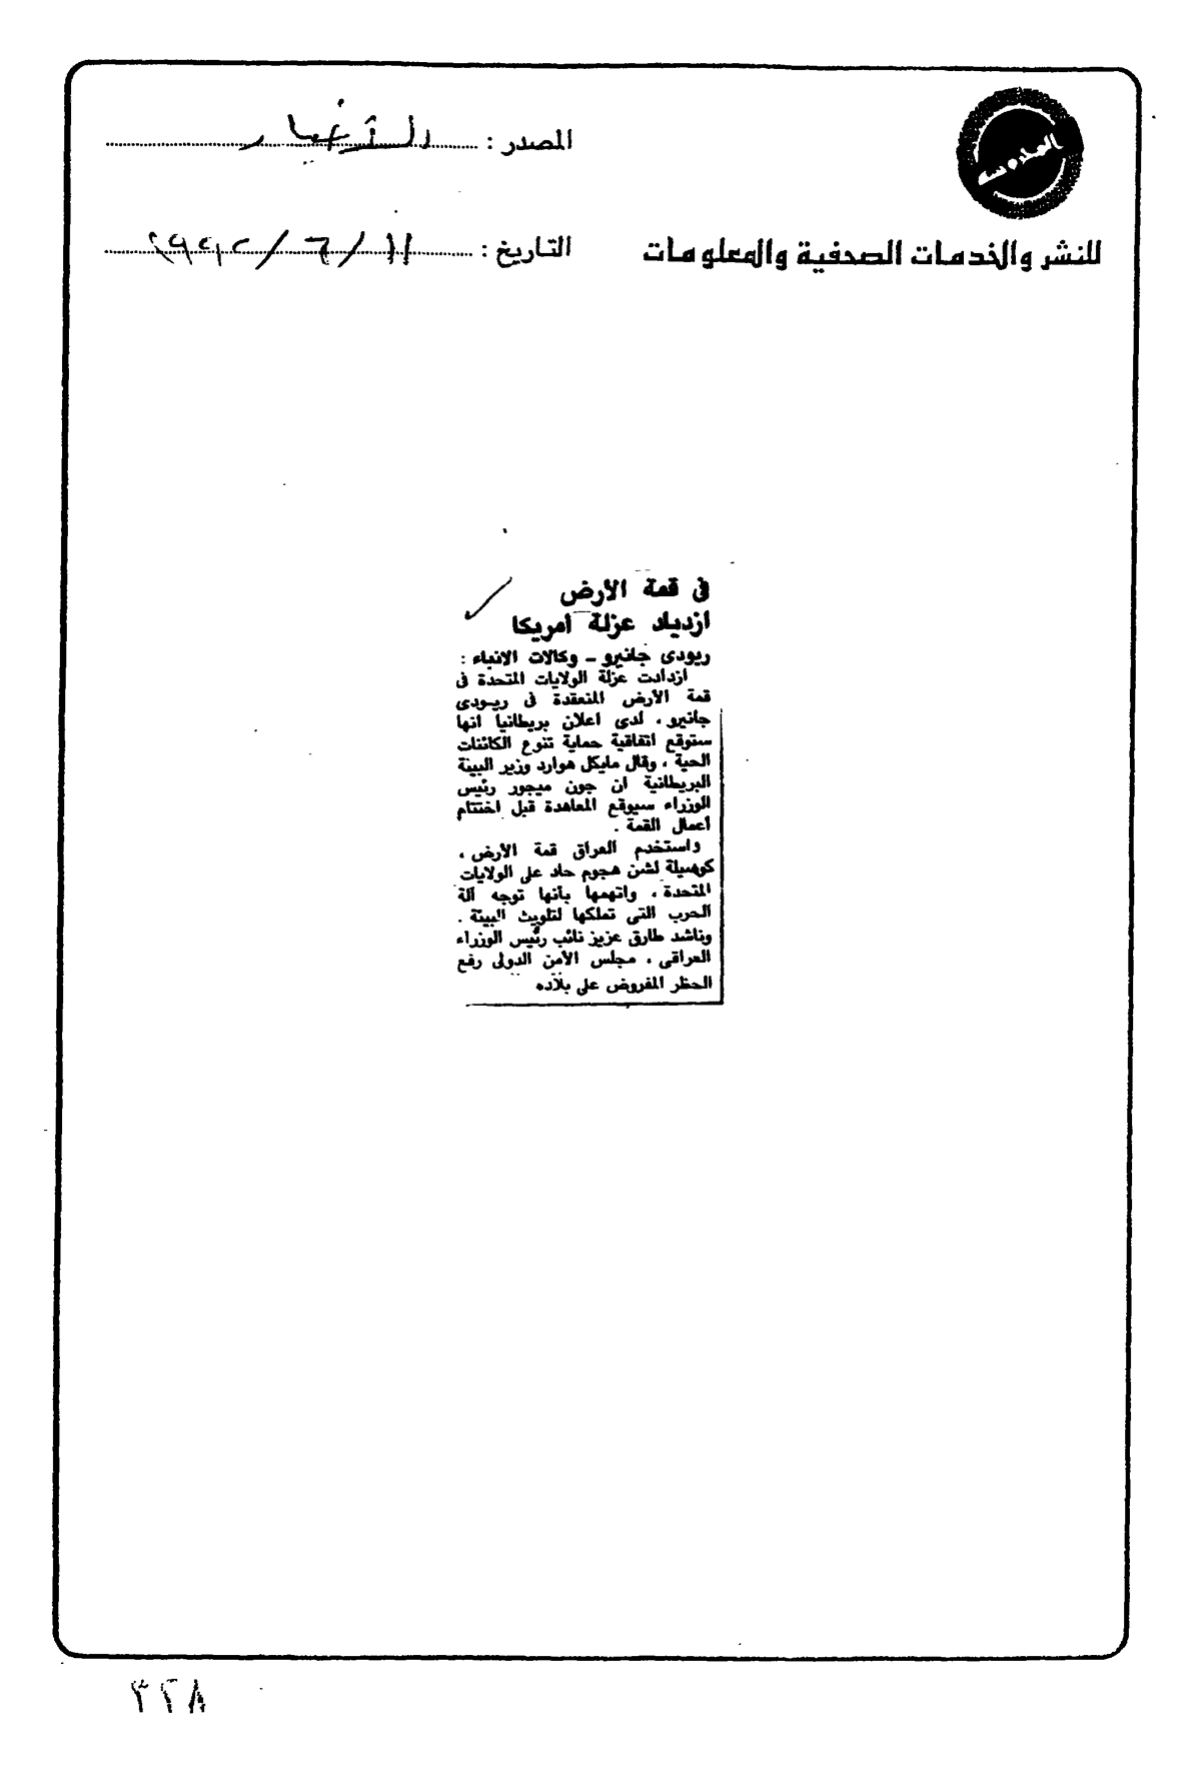 المصدر : الأخبار
للنشر والخدمات الصحفية والمعلومات
التاريخ : ١١ / ٦ / ١٩٩٢
فى قمة الأرض
ازدياد عزلة امريكا
ريودى جانيرو - وكالات الانباء :
ازدادت عزلة الولايات المتحدة فى
قمة الأرض المنعقدة فى ريودى
جانيرو ، لدى اعلان بريطانيا انها
ستوقع اتفاقية حماية تنوع الكائنات
الحية ، وقال مايكل هوارد وزير البيئة
البريطانية ان جون ميجور رئيس
الوزراء سيوقع المعاهدة قبل اختتام
أعمال القمة .
واستخدم العراق قمة الأرض ،
كوسيلة لشن هجوم حاد على الولايات
المتحدة ، واتهمها بأنها توجه آلة
الحرب التى تملكها لتلويث البيئة .
وناشد طارق عزيز نائب رئيس الوزراء
العراقى ، مجلس الأمن الدولى رفع
الحظر المفروض على بلاده
٣٢٨